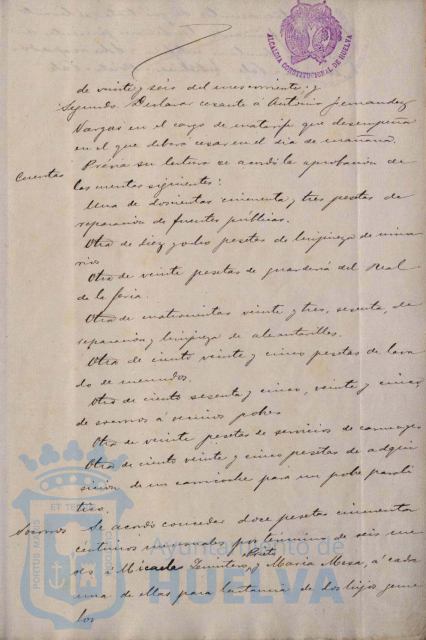 ALCALDIA CONSTITUCIONAL DE HUELVA
de veinte y seis del mes corriente. y
Segundo. Declarar cesante á Antonio Fernandez
Vargas en el cargo de matarife que desempeña
en el que deberá cesar en el dia de mañana.
Cuentas
Prévia su lectura se acordó la aprobacion de
las cuentas siguientes:
Una de doscientas cincuenta y tres pesetas de
reparacion de fuentes públicas.
Otra de diez y ocho pesetas de limpieza de
Otra de veinte pesetas de guarderia del Real
de la feria.
Otra de cuatrocientas veinte y tres, sesenta, de
reparacion y limpieza de alcantarillas.
Otra de ciento veinte y cinco pesetas de lava
do de menudos.
Otra de ciento sesenta y cinco, veinte y cinco
de socorros á vecinos pobres
Otra de veinte pesetas de servicios de carruages
Otra de ciento veinte y cinco pesetas de adqui
sicion de un carricoche para un pobre parali
tico.
Socorros
Se acordó conceder doce pesetas cincuenta
céntimos mensuales por término de seis me
ses á Micaela Prieto y Maria Mesa, á cada
una de ellas para lactancia de dos hijos geme
los
PORTUS MARIS
ET TERRÆ
Ayuntamiento de
HUELVA